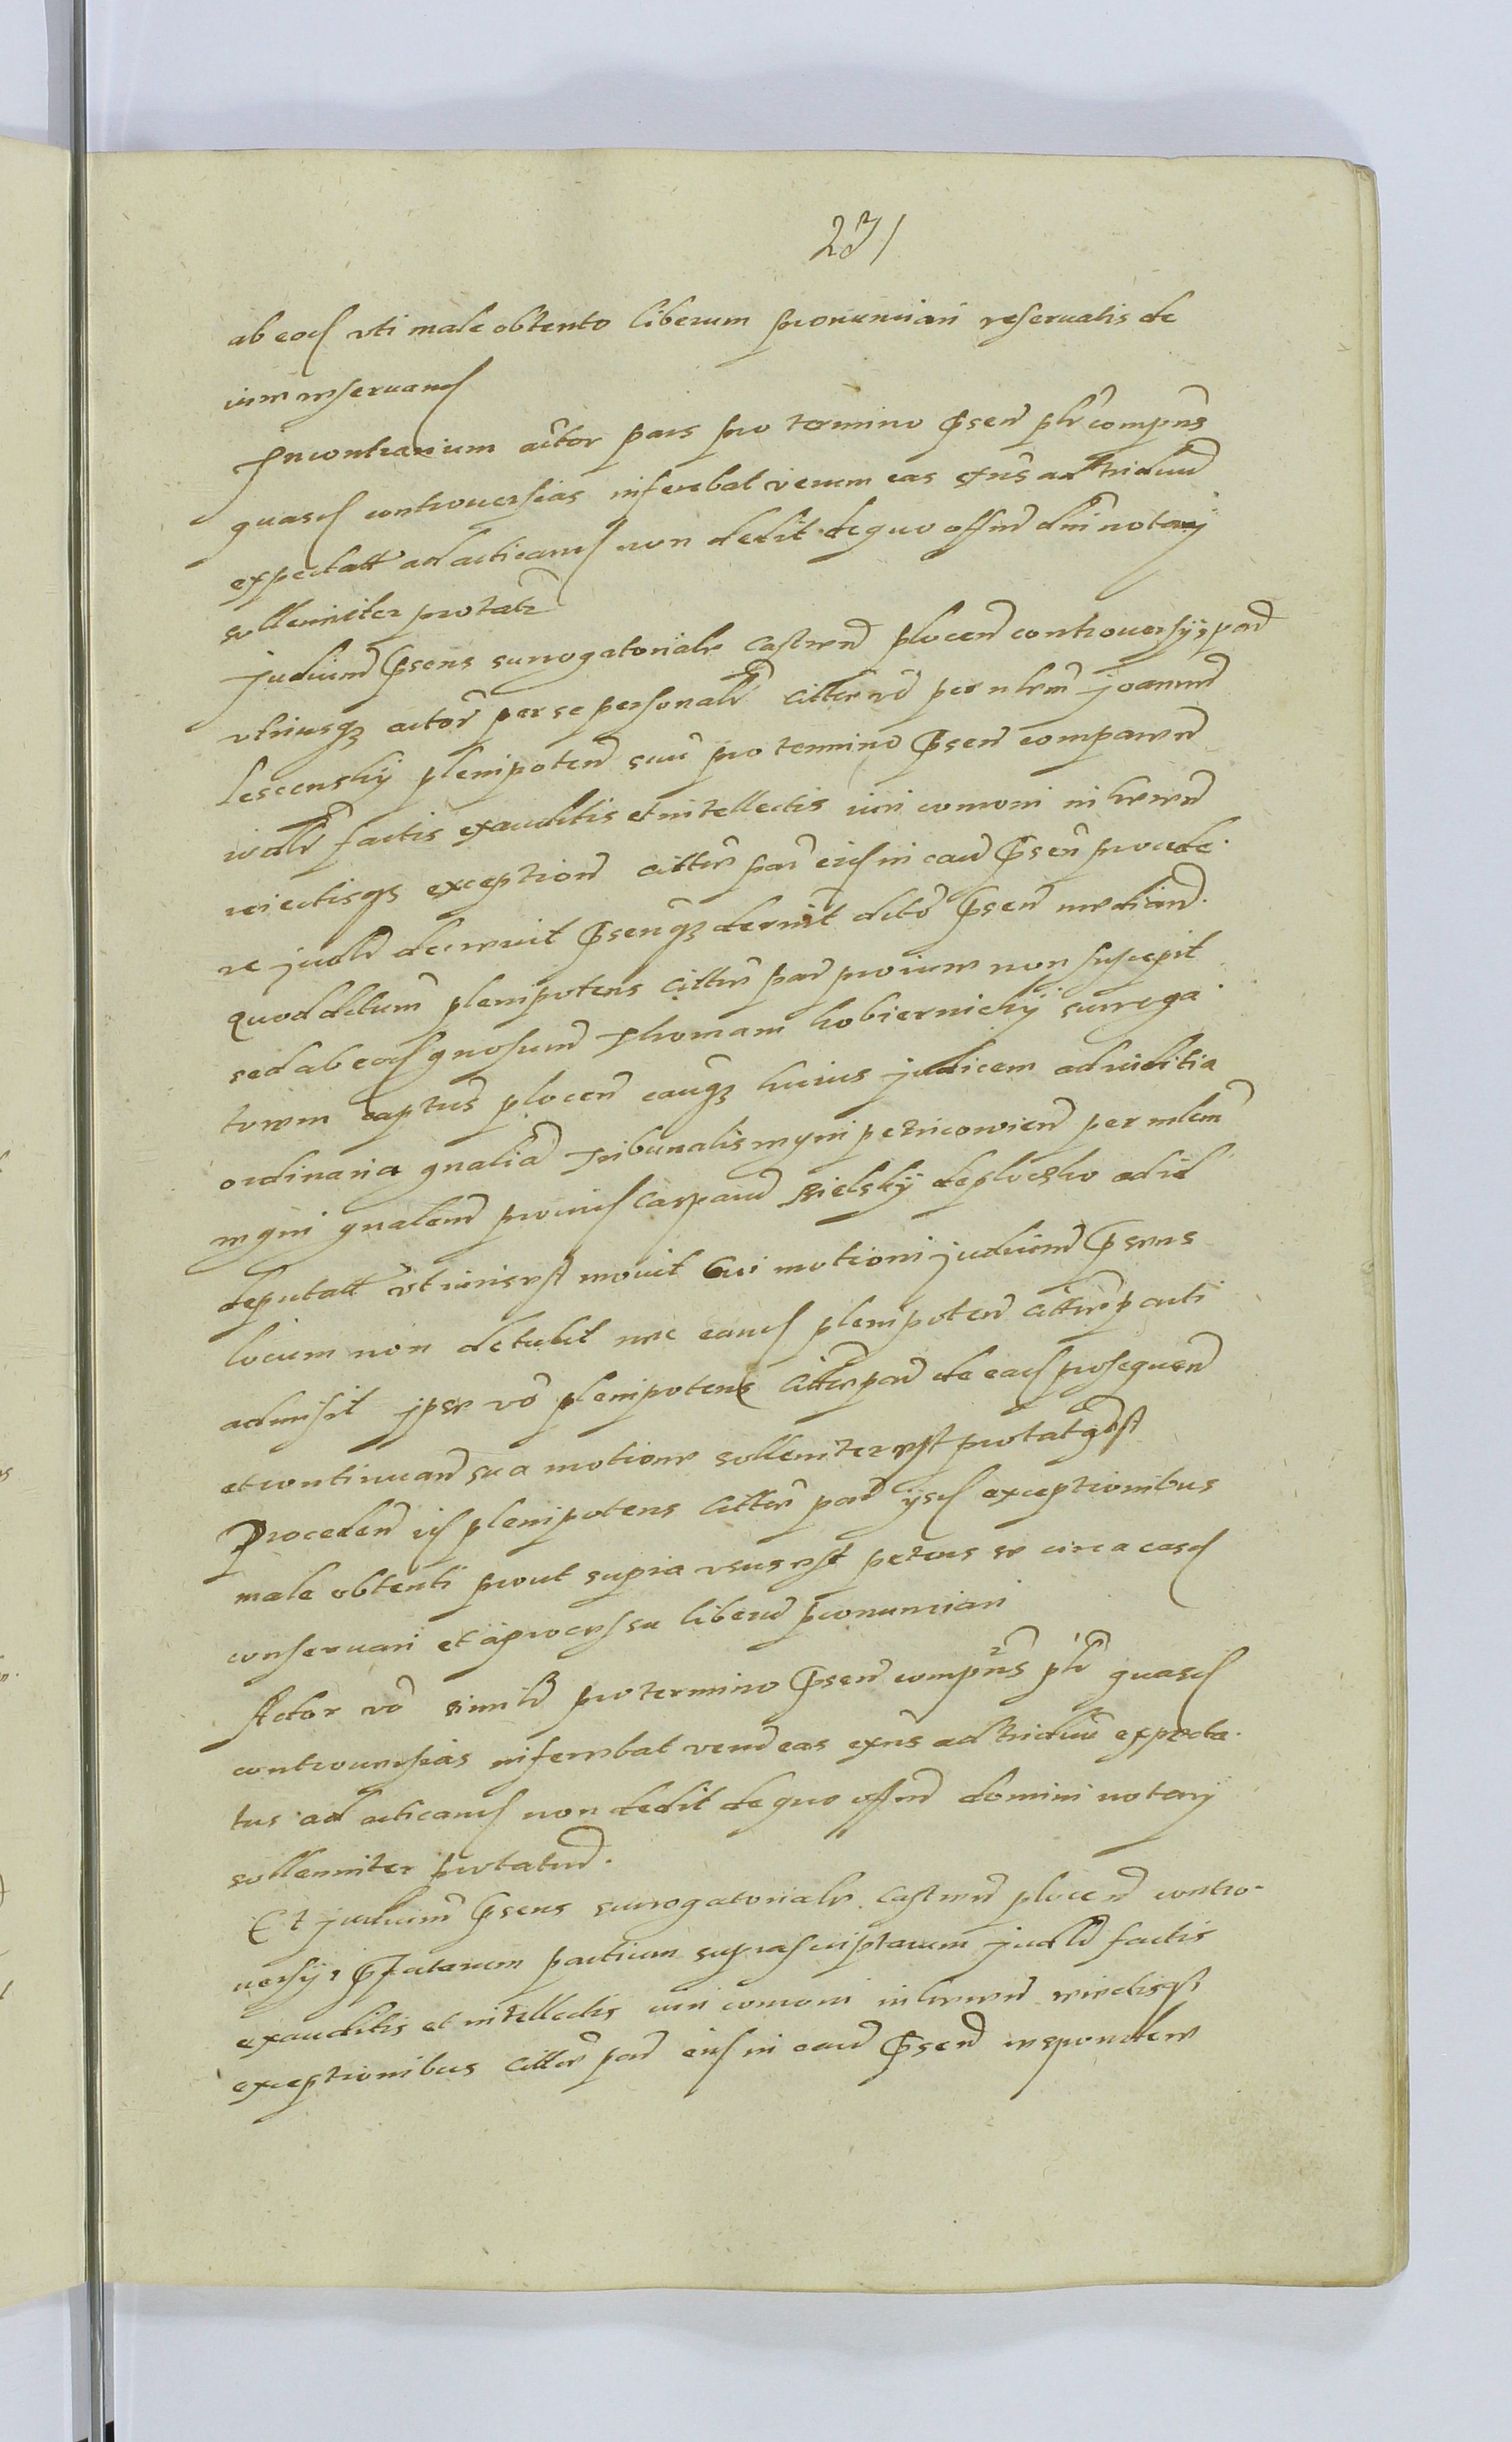 231
ab eod uti male obtento liberum pronunciari reservatis de
iure reservand
In contrarium actor pars pro termino psen plr compns
quasd controversias inferebat verum eas exns ad triduu
expectatt ad acticand non dedit de quo offm dni notarij
sollenniter protatr
Judicium psens surrogatoriale castren plocen controversijs par
utriusq3 actor per se personalr citte vero per nlem joannem
Lescenskij plenipoten suu pro termino psen comparen
judlr factis exauditis et intellectis iuri comoni inheren
reiectisq3 exception citte par eid in cau psen procede.
re judlr decrevit psenq3 decrevit decto psen median.
Quod dctum plenipotens citte par pro iure non suscepit
sed ab eod gnosum Thomam kobiernickij surroga.
torem captus plocen cauq3 huius judicem ad iudicia
ordinaria gnalia Tribunalis regni petricovien per mlem
regni gnalem provid Casparu Bielskij de plocsko ad id
deputatt ut iuris est movit Cui motioni judicium psens
locum non detulit nec eand plenipoten citte parti
admisit jpse vo plenipotens citte par de ead prosequen
et continuan sua motione sollenniter est protatq est
Proceden id plenipotens citte par ijsd exceptionibus
male obtenti prout supra usus est petens se circa easd
conservari et a processu liberu pronunciari
Actor vo similr pro termino psen compns plr quasd
controversias inferebat veru eas exns ad triduu expecta.
tus ad acticand non dedit de quo offm domini notarij
sollenniter protatur.
Et judicium psens surrogatoriale castren plocen contro-
versijs pfatarum partium suprascriptarum judlr factis
exauditis et intellectis iuri comoni inheren reiectisq3
exceptionibus citte par eid in cau psen respondere